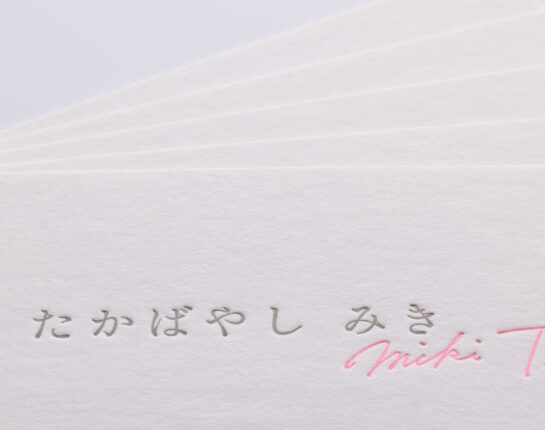 たかばやし みき
miki T